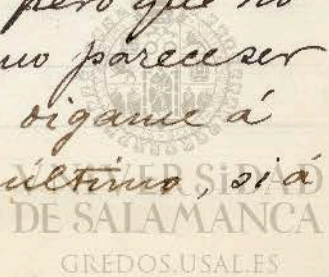 pero que no
no parecer ser
oigame á
último, si á
UNIVERSIDAD
DE SALAMANCA
GREDOS.USAL.ES